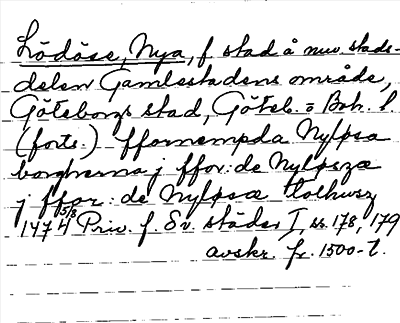 Lödöse, Nya, f stad å nuv. stads-
delen Gamlestadens område,
Göteborgs stad, Göteb. o Boh. l.
(forts.) ffornempda Nylösa
borgherna j ffor: de Nylösze
j ffor: de Nylösa
1474 5/8 Priv. f. Sv. städer I, nr. 178, 179
avskr. fr. 1500-t.